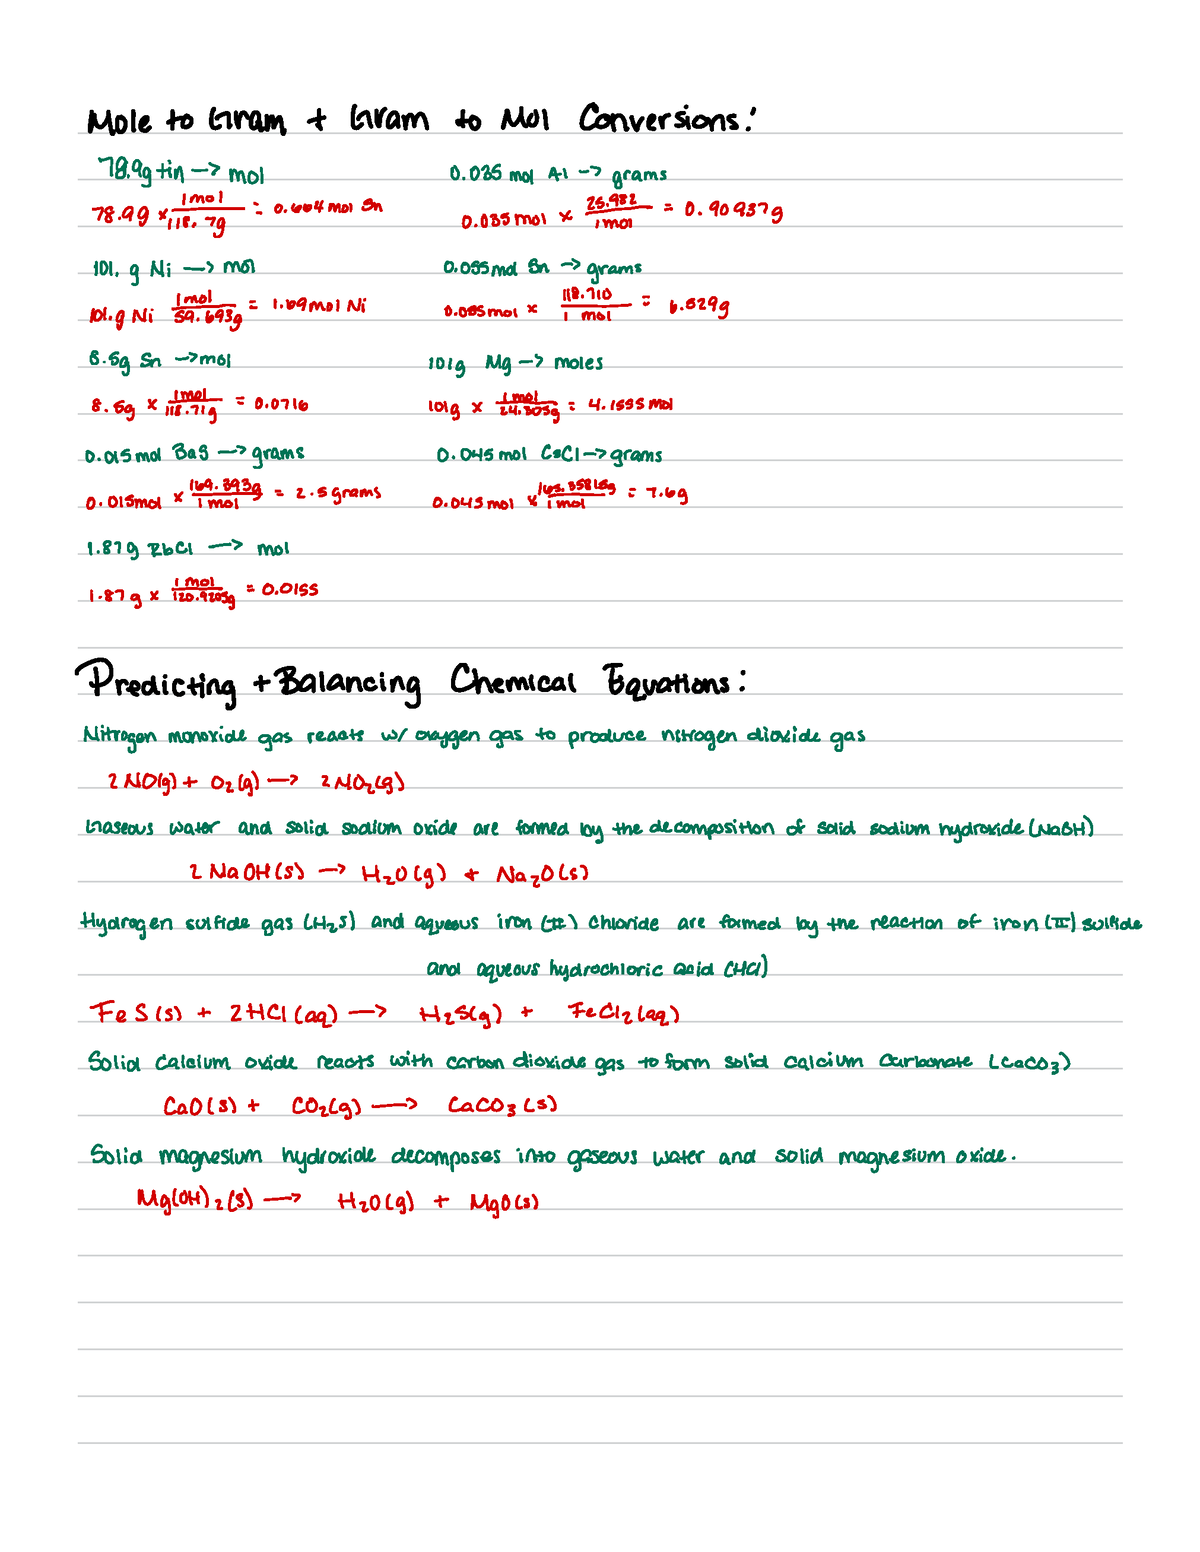 Mole to Gram + Gram to Mol Conversions:
78.9g tin -> mol
78.9g x 1 mol / 118.7g = 0.664 mol Sn
0.035 mol Al -> grams
0.035 mol x 25.982 / 1 mol = 0.90937g
101. g Ni -> mol
101.g Ni 1 mol / 59.693g = 1.69 mol Ni
0.055 mol Sn -> grams
0.055 mol x 118.710 / 1 mol = 6.529g
8.5g Sn -> mol
8.5g x 1 mol / 118.71g = 0.0716
101g Mg -> moles
101g x 1 mol / 24.305g = 4.1555 mol
0.015 mol BaS -> grams
0.015mol x 169.393g / 1 mol = 2.5 grams
0.045 mol CsCl -> grams
0.045 mol x 168.35815g / 1 mol = 7.6g
1.87g RbCl -> mol
1.87g x 1 mol / 120.9205g = 0.0155
Predicting + Balancing Chemical Equations:
Nitrogen monoxide gas reacts w/ oxygen gas to produce nitrogen dioxide gas
2 NO(g) + O₂(g) -> 2NO₂(g)
Gaseous water and solid sodium oxide are formed by the decomposition of solid sodium hydroxide (NaOH)
2 NaOH(s) -> H₂O(g) + Na₂O(s)
Hydrogen sulfide gas (H₂S) and aqueous iron (II) chloride are formed by the reaction of iron (II) sulfide
and aqueous hydrochloric acid (HCl)
FeS(s) + 2HCl(aq) -> H₂S(g) + FeCl₂(aq)
Solid Calcium oxide reacts with carbon dioxide gas to form solid calcium carbonate (CaCO₃)
CaO(s) + CO₂(g) -> CaCO₃(s)
Solid magnesium hydroxide decomposes into gaseous water and solid magnesium oxide.
Mg(OH)₂(s) -> H₂O(g) + MgO(s)